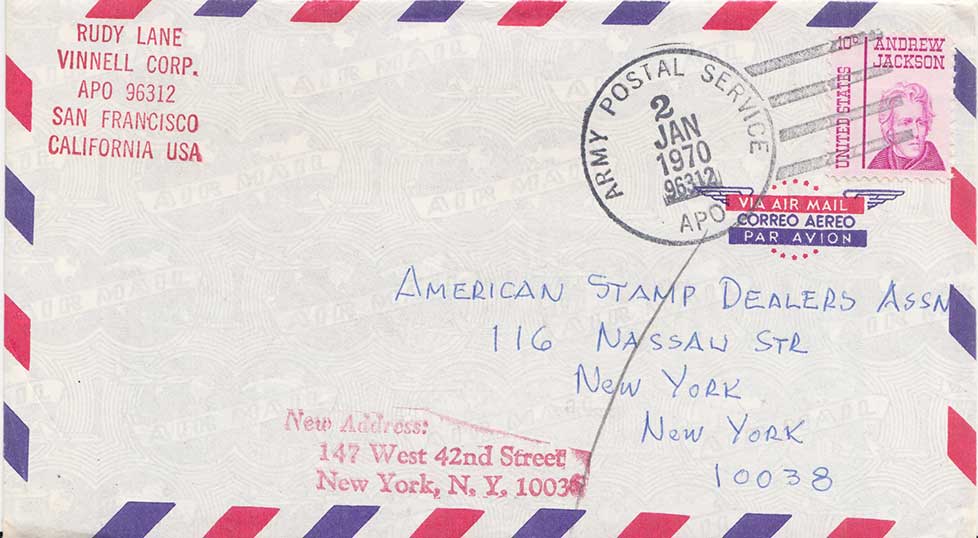 RUDY LANE
VINNELL CORP.
APO 96312
SAN FRANCISCO
CALIFORNIA USA
ARMY POSTAL SERVICE
2
JAN
1970
96312
APO
10c
ANDREW
JACKSON
UNITED STATES
VIA AIR MAIL
CORREO AEREO
PAR AVION
AMERICAN STAMP DEALERS ASSN
116 NASSAU STR
NEW YORK
NEW YORK
10038
New Address:
147 West 42nd Street
New York, N. Y. 10036
AIR MAIL